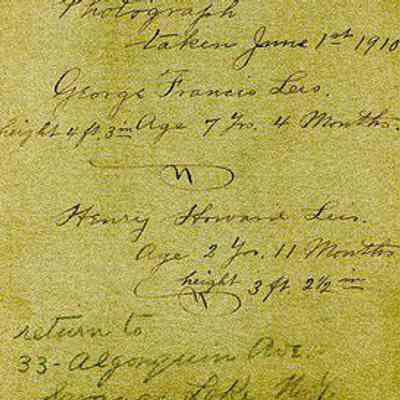 Photograph
taken June 1st 1910
George Francis Leis.
height 4 ft. 3 in Age 7 Yrs. 4 Months.
Henry Howard Leis.
Age 2 Yrs. 11 Months
height 3 ft. 2½ in
return to
33-Algonquin Ave.
Saranac Lake N.Y.